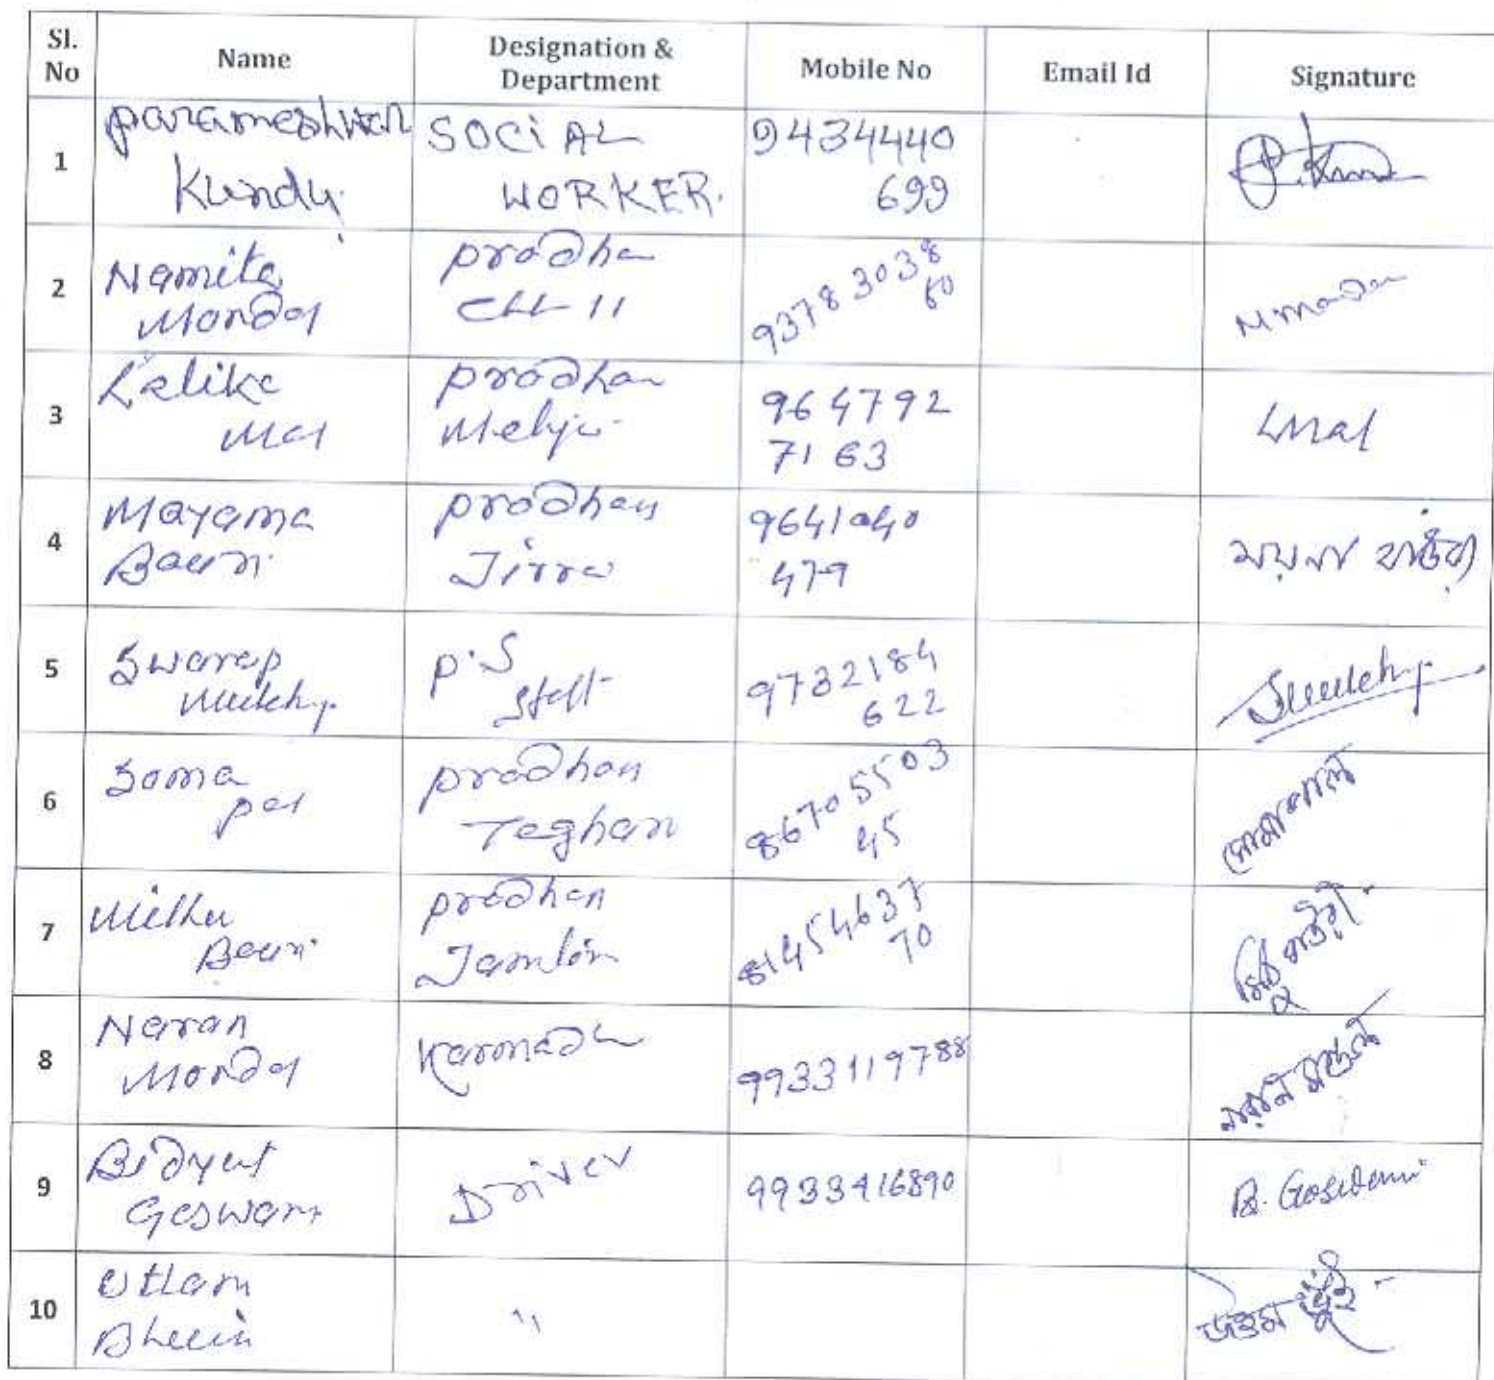 Sl. No Name Designation & Department Mobile No Email Id Signature
1 Parameshwar Kundu. SOCIAL WORKER. 9434440 699
2 Namita Mondal pradhan 93783038 60 N. Mondal
3 Lalika Mal pradhan Mehjia 964792 7163 LMal
4 Mayama Bauri pradhan 9641040 479 ময়না বাউরী
5 Swarup P.S Staff 9732184 622
6 Soma pal pradhan Teghari 86705503 45 সোমা পাল
7 Mithu Bauri pradhan 81454637 70 মিঠু বাউরী
8 Naran Mondal 9933119788
9 Bidyut Goswami Driver 9933416890 B. Goswami
10 Uttam Bhuin " উত্তম